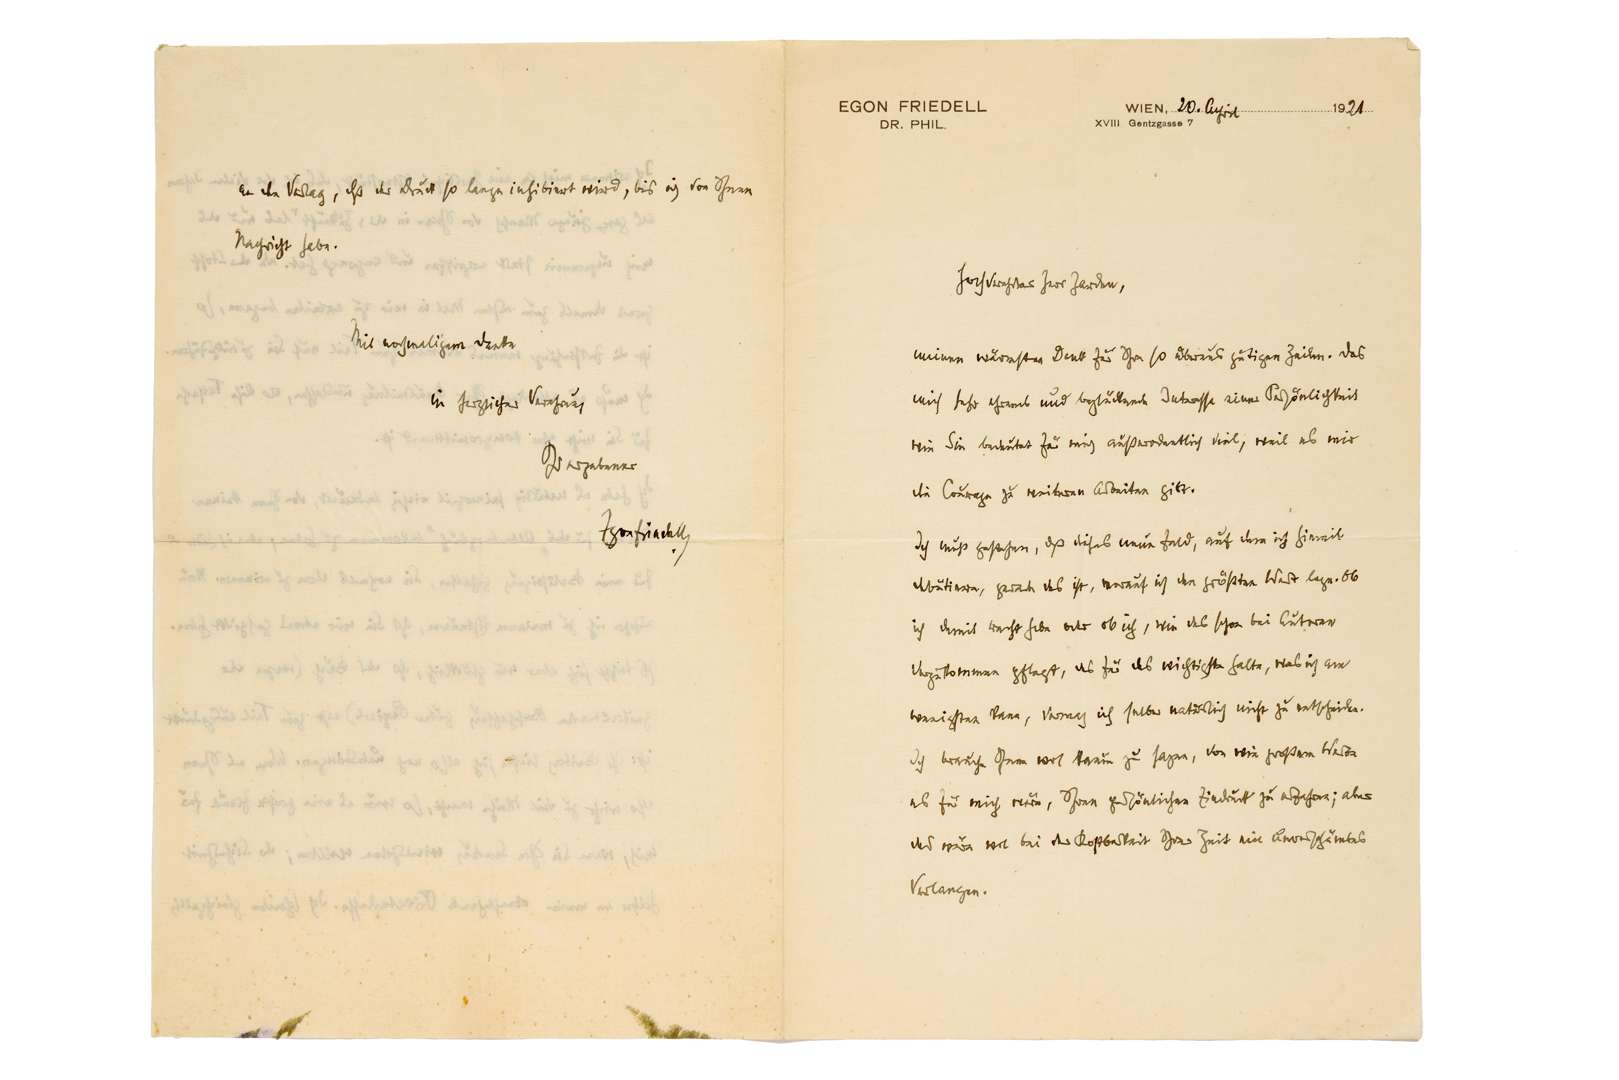 EGON FRIEDELL
DR. PHIL.
WIEN, 20. April 1921
XVIII Gentzgasse 7
Hochverehrter Herr Harden,
meinen wärmsten Dank für Ihre so überaus gütigen Zeilen. Das
mich sehr ehrende und beglückende Interesse einer Persönlichkeit
wie Sie bedeutet für mich außerordentlich viel, weil es mir
die Courage zu weiteren Arbeiten gibt.
Ich muß gestehen, daß dieses neue Feld, auf dem ich hiemit
debutiere, gerade das ist, worauf ich den größten Wert lege. Ob
ich damit recht habe oder ob ich, wie das schon bei Autoren
vorzukommen pflegt, das für das wichtigste halte, was ich am
wenigsten kann, vermag ich selber natürlich nicht zu entscheiden.
Ich brauche Ihnen wol kaum zu sagen, von wie großem Werte
es für mich wäre, Ihren persönlichen Eindruck zu erfahren; aber
das wäre wol bei der Kostbarkeit Ihrer Zeit ein unverschämtes
Verlangen.
an den Verlag, daß der Druck so lange inhibiert wird, bis ich von Ihnen
Nachricht habe.
Mit nochmaligem Danke
in herzlicher Verehrung
Ihr ergebener
Egon Friedell